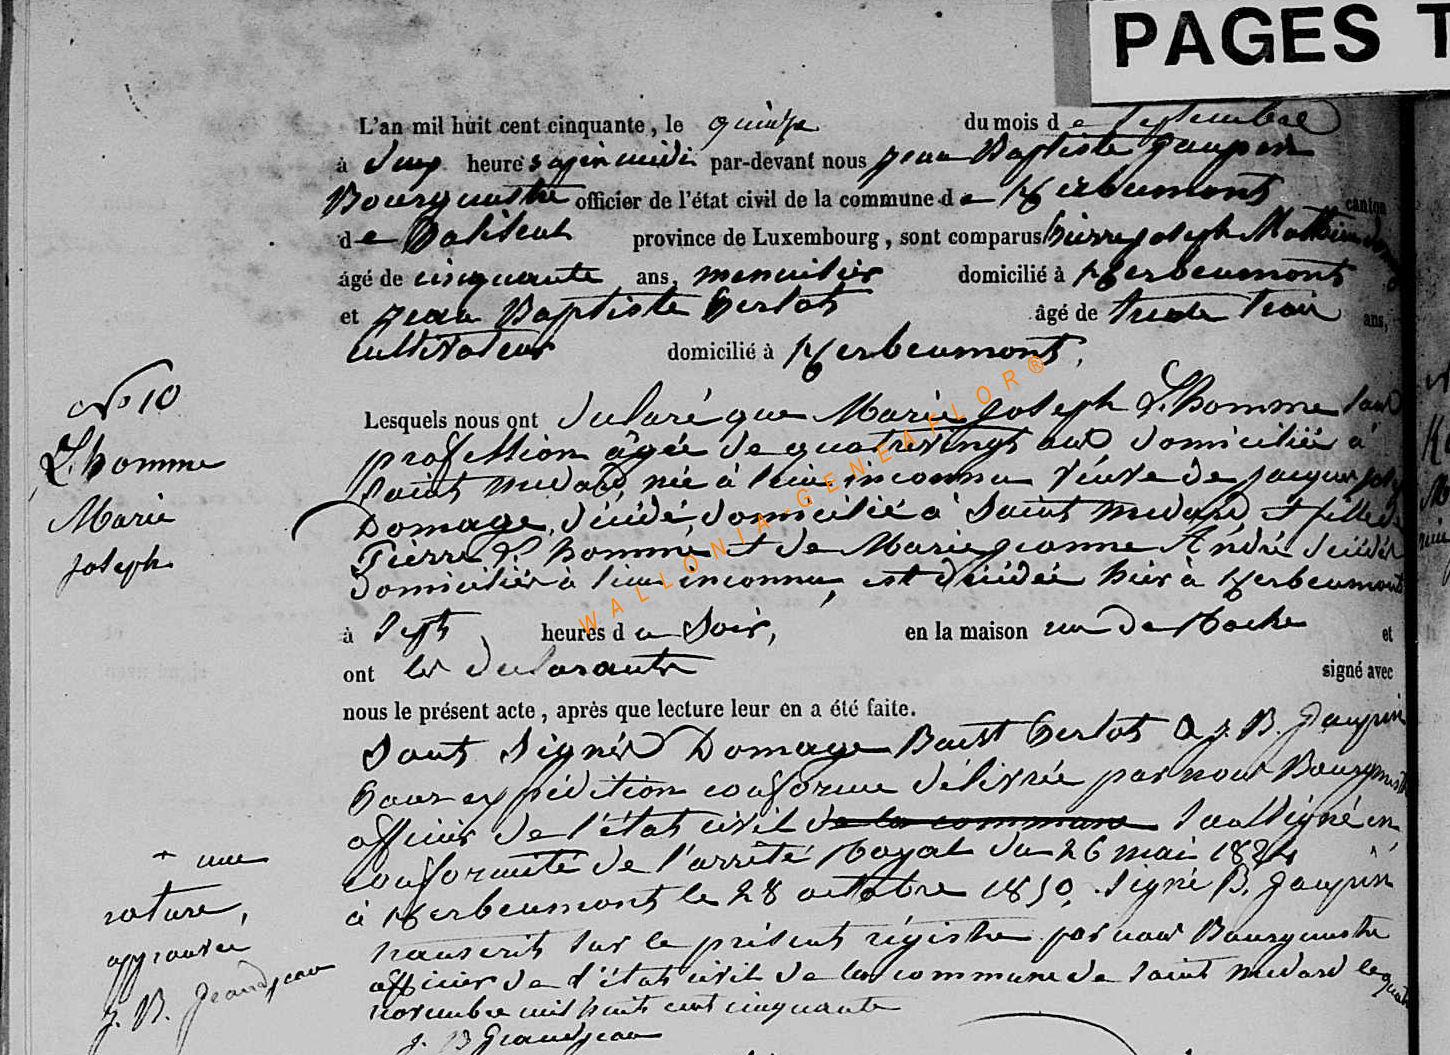 PAGES T
L'an mil huit cent cinquante, le quinze du mois de Septembre
à deux heures après midi par-devant nous Jean Baptiste Jaupin
Bourgmestre officier de l'état civil de la commune de Herbeumont canton
de Paliseul province de Luxembourg, sont comparus Pierre Joseph Mathieu
âgé de cinquante ans, menuisier domicilié à Herbeumont
et Jean Baptiste Perlot âgé de trente trois ans,
cultivateur domicilié à Herbeumont,
No 10
L'homme
Marie
Joseph
Lesquels nous ont déclaré que Marie Joseph L'homme sans
profession âgée de quatrevingt ans domiciliée à
Saint Medard née à lieu inconnu veuve de Jacques
Domage, décédé, domicilié à Saint Medard et fille de
Pierre L'homme et de Marie Jeanne André décédés
domiciliés à lieu inconnu, est décédée hier à Herbeumont
à Sept heures du Soir, en la maison rue de et
ont les déclarants signé avec
nous le présent acte, après que lecture leur en a été faite.
Sont Signés Domage Perlot J. B. Jaupin
Pour expédition conforme délivrée par nous Bourgmestre
officier de l'état civil de la commune soussigné en
conformité de l'arrêté Royal du 26 mai 1824
à Herbeumont le 28 octobre 1850. Signé B. Jaupin
transcrit sur le présent régistre par nous Bourgmestre
officier de l'état civil de la commune de Saint Medard le quatre
novembre mil huit cent cinquante
J. B Grandjean
+ une
rature,
approuvée
J. B. Grandjean
WALLONIA-GENEAFLOR®